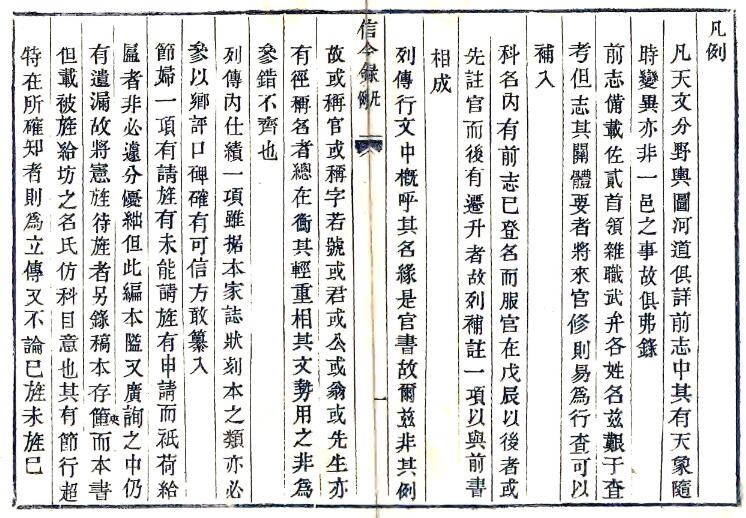 凡例
凡天文分野輿圖河道俱詳前志中其有天象隨
時變異亦非一邑之事故俱弗錄
前志備載佐貳首領雜職武弁各姓名兹艱于查
考但志其關體要者將來官修則易爲行查可以
補入
科名內有前志已登名而服官在戊辰以後者或
先註官而後有遷升者故列補註一項以與前書
相成
列傳行文中概呼其名緣是官書故爾兹非其例
信今錄 凡例 一
故或稱官或稱字若號或君或公或翁或先生亦
有徑稱名者總在衡其輕重相其文勢用之非爲
參錯不齊也
列傳內仕績一項雖据本家誌狀刻本之類亦必
參以鄉評口碑確有可信方敢纂入
節婦一項有請旌有未能請旌有申請而祇荷給
匾者非必遽分優絀但此編本隘又廣詢之中仍
有遺漏故將憲旌待旌者另錄稿本存篋而本書
但載被旌給坊之名氏仿科目意也其有節行超
特在所確知者則爲立傳又不論已旌未旌已